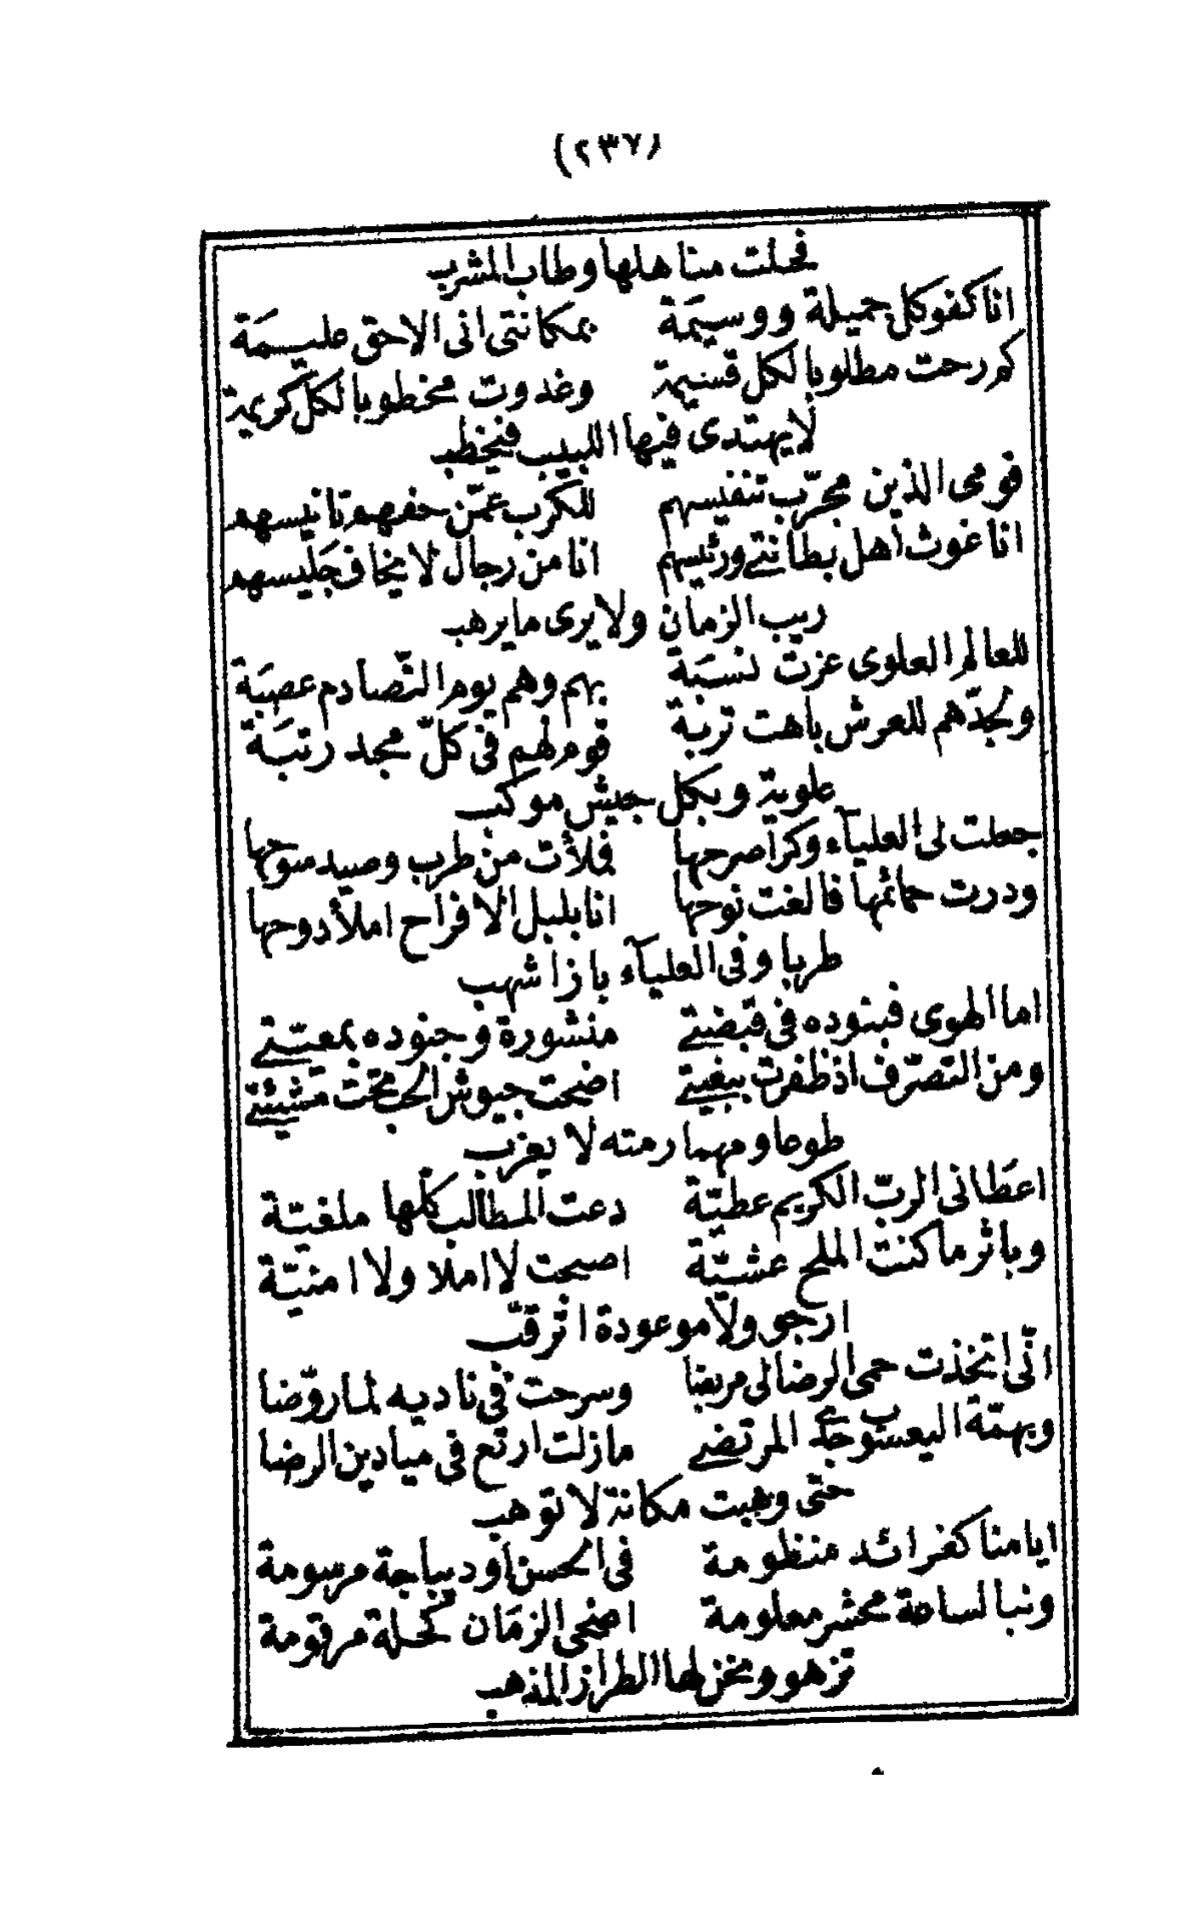 (٢٣٧)
فحلت مناهلها وطاب المشرب
انا كفو كل جميلة ووسيمة بمكانتى انى الاحق عليمة
كم رحت مطلوبا لكل قسيمة وغدوت مخطوبا لكل كريمة
لا يهتدى فيها اللبيب فيخطب
قومى الذين مجرب تنفيسهم للكرب عمن حفهم تانيسهم
انا غوث اهل بطانتى ورئيسهم انا من رجال لا يخاف جليسهم
ريب الزمان ولا يرى ما يرهب
للعالم العلوى عزت نسبة بهم وهم يوم التصادم عصبة
ولجدهم للعرش باهت تربة قوم لهم فى كل مجد رتبة
علوية وبكل جيش موكب
جعلت لى العلياء وكرا صرحها فملأت من طرب وصيد سوحها
ودرت حمائمها فالغت نوحها انا بلبل الافراح املأ دوحها
طربا وفى العلياء باز اشهب
اما الهوى فبنوده فى قبضتى منشورة وجنوده بمعيتى
ومن التصرف اذ ظفرت ببغيتى اضحت جيوش الحب تحت مشيئتى
طوعا ومهما رمته لا يعزب
اعطانى الرب الكريم عطية دعت المطالب كلها ملغية
وباثر ما كنت الملح عشية اصبحت لا املا ولا امنية
ارجو ولا موعودة اترقب
انى اتخذت حمى الرضا لى مربضا وسرحت فى ناديه لما روضا
وبهمة اليعسوب جدى المرتضى ما زلت ارتع فى ميادين الرضا
حتى وهبت مكانة لا توهب
ايامنا كفرائد منظومة فى الحسن او ديباجة مرسومة
ونبا لساعة محشر معلومة اضحى الزمان كحلة مرقومة
تزهو ونحن لها الطراز المذهب